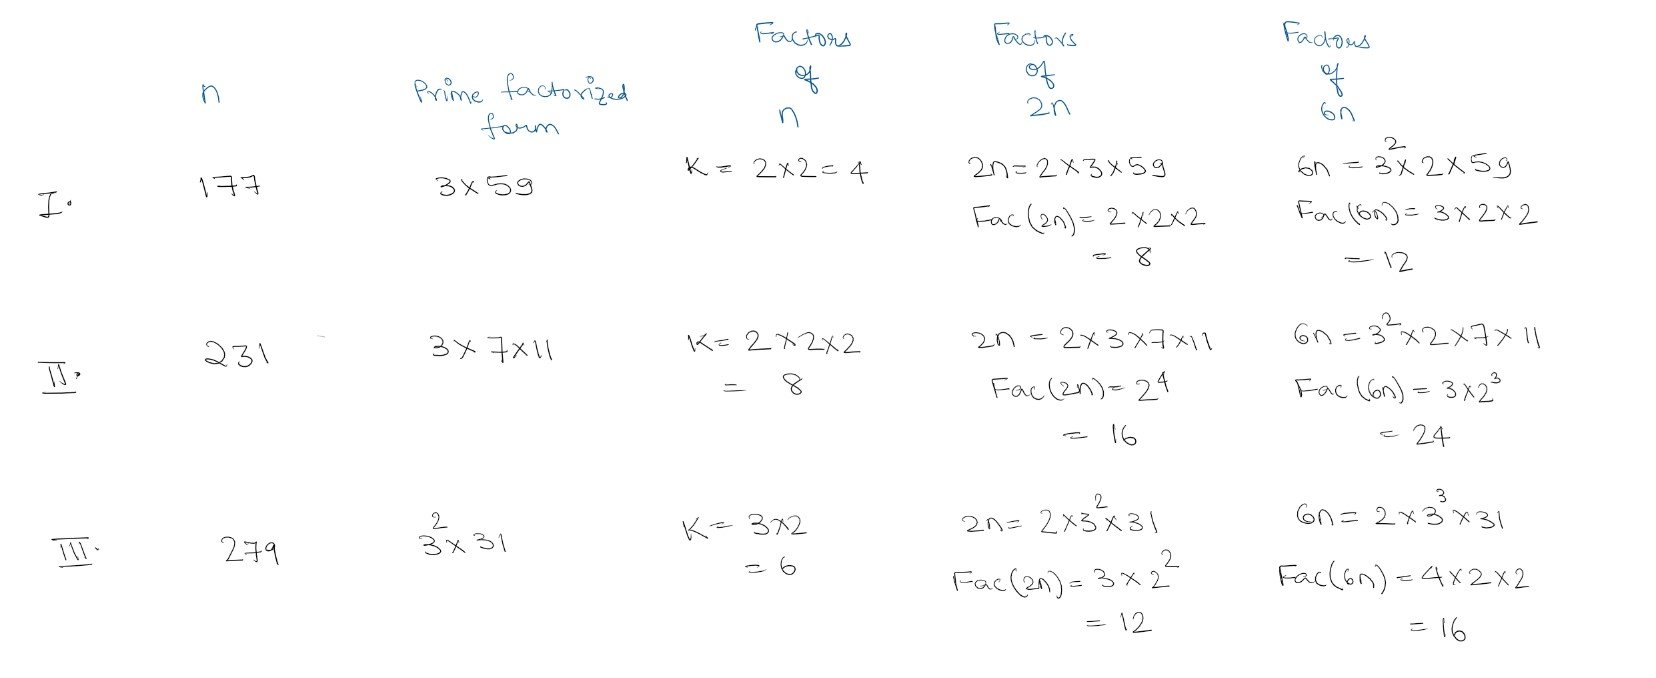 Factors of n
Factors of 2n
Factors of 6n
n
Prime factorized form
I.
177
3 × 59
K = 2×2 = 4
2n = 2×3×59
Fac(2n) = 2×2×2
= 8
6n = 3²×2×59
Fac(6n) = 3×2×2
= 12
II.
231
3×7×11
K = 2×2×2
= 8
2n = 2×3×7×11
Fac(2n) = 2⁴
= 16
6n = 3²×2×7×11
Fac(6n) = 3×2³
= 24
III.
279
3²×31
K = 3×2
= 6
2n = 2×3²×31
Fac(2n) = 3×2²
= 12
6n = 2×3³×31
Fac(6n) = 4×2×2
= 16